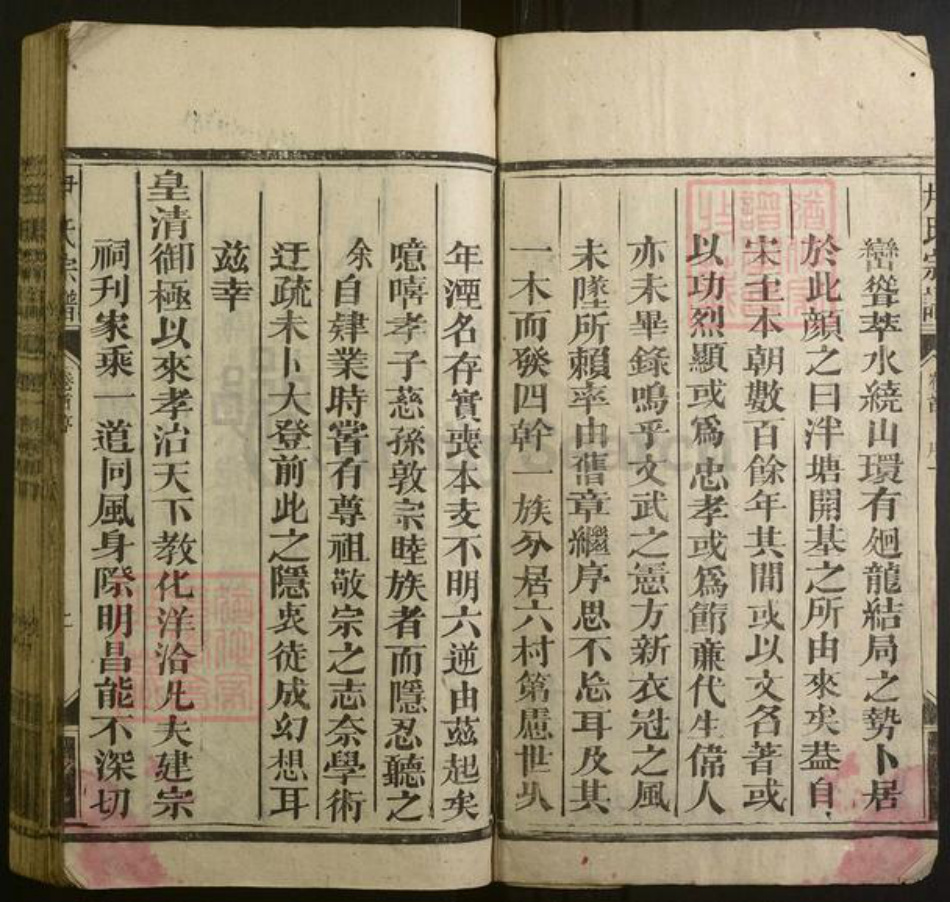 巒聳萃水繞山環有廻龍結局之勢卜居
於此顔之曰泮塘開基之所由來矣葢自
宋至本朝數百餘年其間或以文名著或
以功烈顯或爲忠孝或爲節亷代生偉人
亦未畢錄嗚乎文武之憲方新衣冠之風
未墜所賴率由舊章繼序思不忘耳及其
一木而發四幹一族分居六村第慮世
年湮名存實喪本支不明六逆由茲起矣
噫嘻孝子慈孫敦宗睦族者而隱忍聽之
余自肄業時嘗有尊祖敬宗之志奈學術
迂疏未卜大登前此之隱衷徒成幻想耳
茲幸
皇清御極以來孝治天下教化洋洽凡夫建宗
祠刋家乘一道同風身際明昌能不深切
氏宗譜